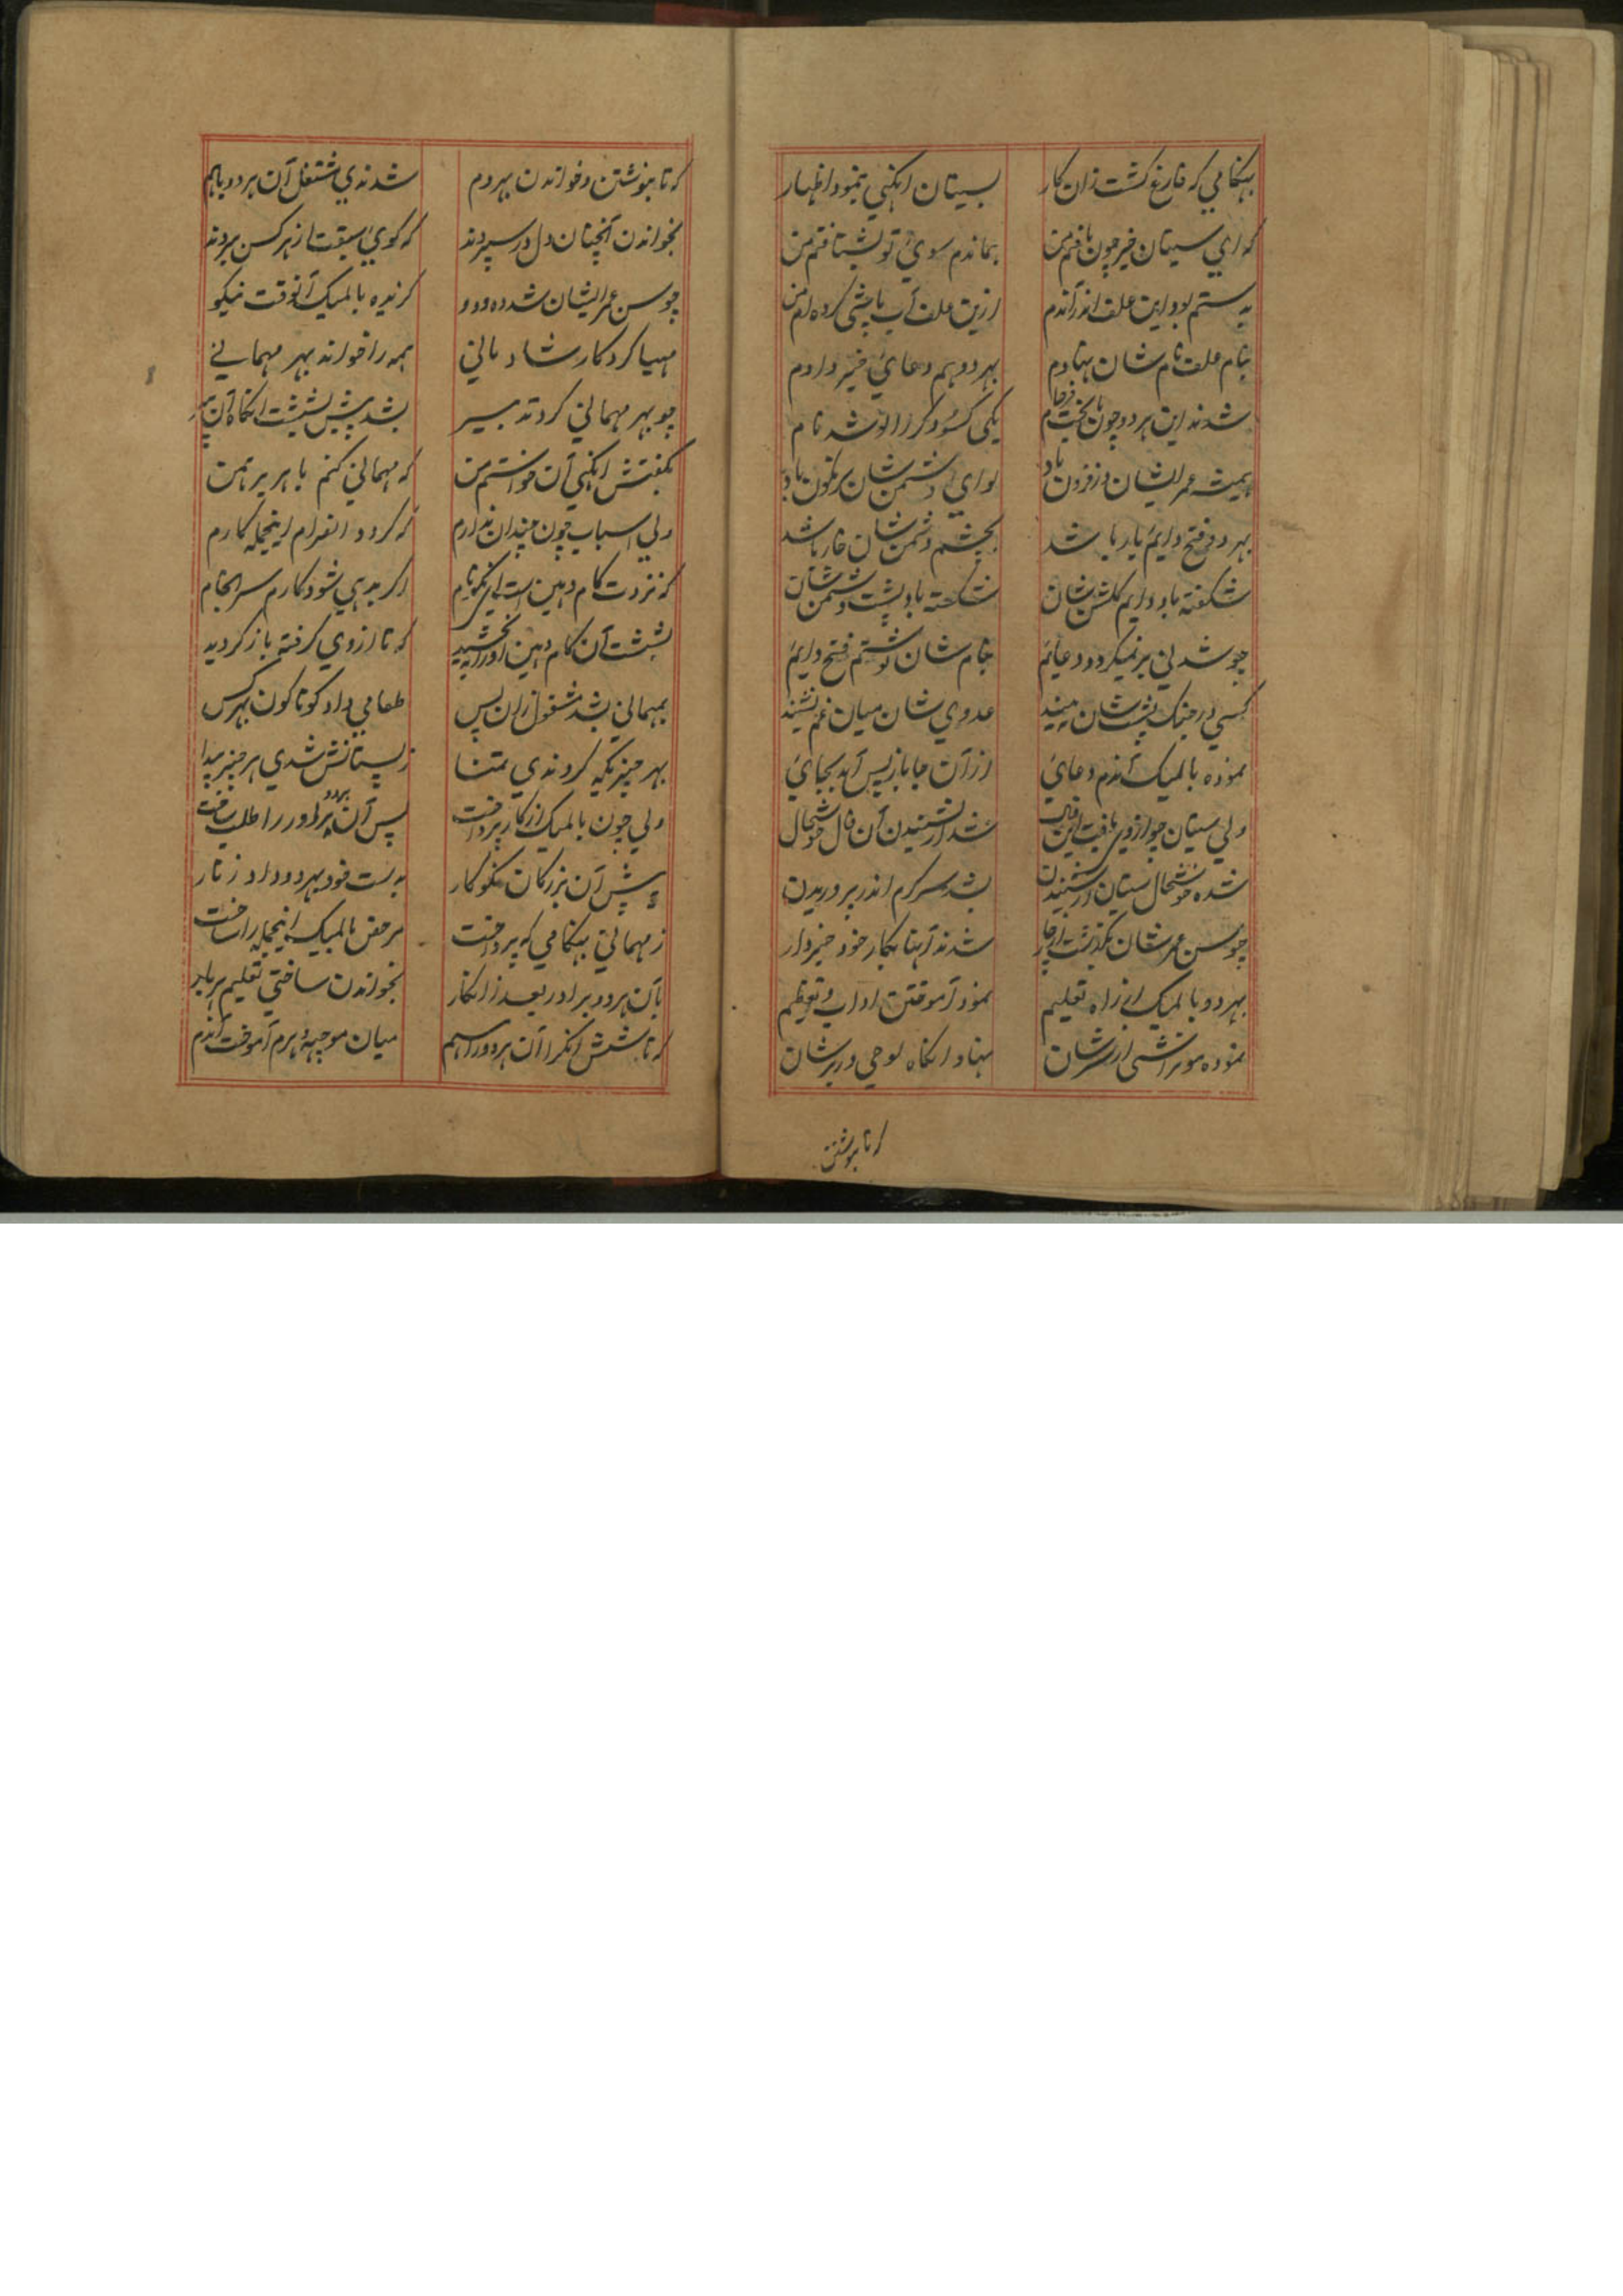 بهنکامي که فارغ کشت زان کار بسیتان اینکني بنمود اظهار
که اي سیتان خبر چون یافتم من بماندم سوئ تو بشتافتم من
به دستم بود این علف اندر آندم ازین علف آب پاشي کرده ام من
بنام علف نام شان نهادم بهر دو هم دعائ خیر دادم
شدند این هر دو چون یکي کسو دکر را لو شد نام
همیشه عمر ایشان در فزون باد لوای دشمن شان سرنکون باد
بهر دو فتح دایم یار باشد بچشم دشمن شان خار باشد
شکفته باد دایم کلشن شان شکسته باد پشت دشمن شان
چو شدني بر نمیکردد دعائم بنام شان نوشتم فتح دایم
کسي در جنک پشت شان نه بیند عدوي شان میان غم نشیند
نموده بالمیک آندم دعائ از آن جا باز پس آمد بجائ
ولي سیتان چو از وي یافت این فال شد از شنیدن آن فال خوشحال
شده خوشحال سیتان در شنیدن بشد سرکرم اندر پروریدن
چو سن عمر شان بکذشت از چار شدند آنها بکار خود خبردار
بهر دو بالمیک از راه تعلیم نمود آموختن اداب و تعظیم
نموده مو تراشي از سر شان نهاد انکاه لوحي در بر شان
که تا بنوشتن
که تا بنوشتن و خواندن بهر دم شدندي مشتغل آن هر دو با هم
بخواندن آنچنان دل در سپردند که کوئ سبقت از هر کس ببردند
چو سن عمر ایشان شد ده و دو کزیده بالمیک آنوقت نیکو
مهیا کرد کار شادماني همه را خواند بهر مهماني
چو بهر مهماني کرد تدبیر بشد پیش بششت انکاه آن پیر
بکفتش اینکني آن خواستم من که مهماني کنم با هر برهمن
ولي اسباب چون چندان ندارم که کردد انصرام اینجمله کارم
که نزدت کام دهین است اي نکونام اکر بدهي شود کارم سرانجام
بششت آن کام دهین اورا بخشید که تا از وي کرفته باز کردید
بمهماني بشد مشغول زان پس طعامي داد کوناکون بهر کس
بهر چیزیکه کردندي تمنا ز پستانش شدي هر چیز پیدا
ولي چون بالمیک از کار پرداخت پس آن هر دو برادر را طلب ساخت
به پیش آن بزرکان نکوکار بدست خود بهر دو داد زنار
ز مهماني بهنکامي که پرداخت مرخص بالمیک اینجمله را ساخت
بآن هر دو برادر بعد زانکار بخواندن ساختي تعلیم هر بار
که تا شش انکرا آن هر دو را هم میان موجهه دهرم آموخت آندم